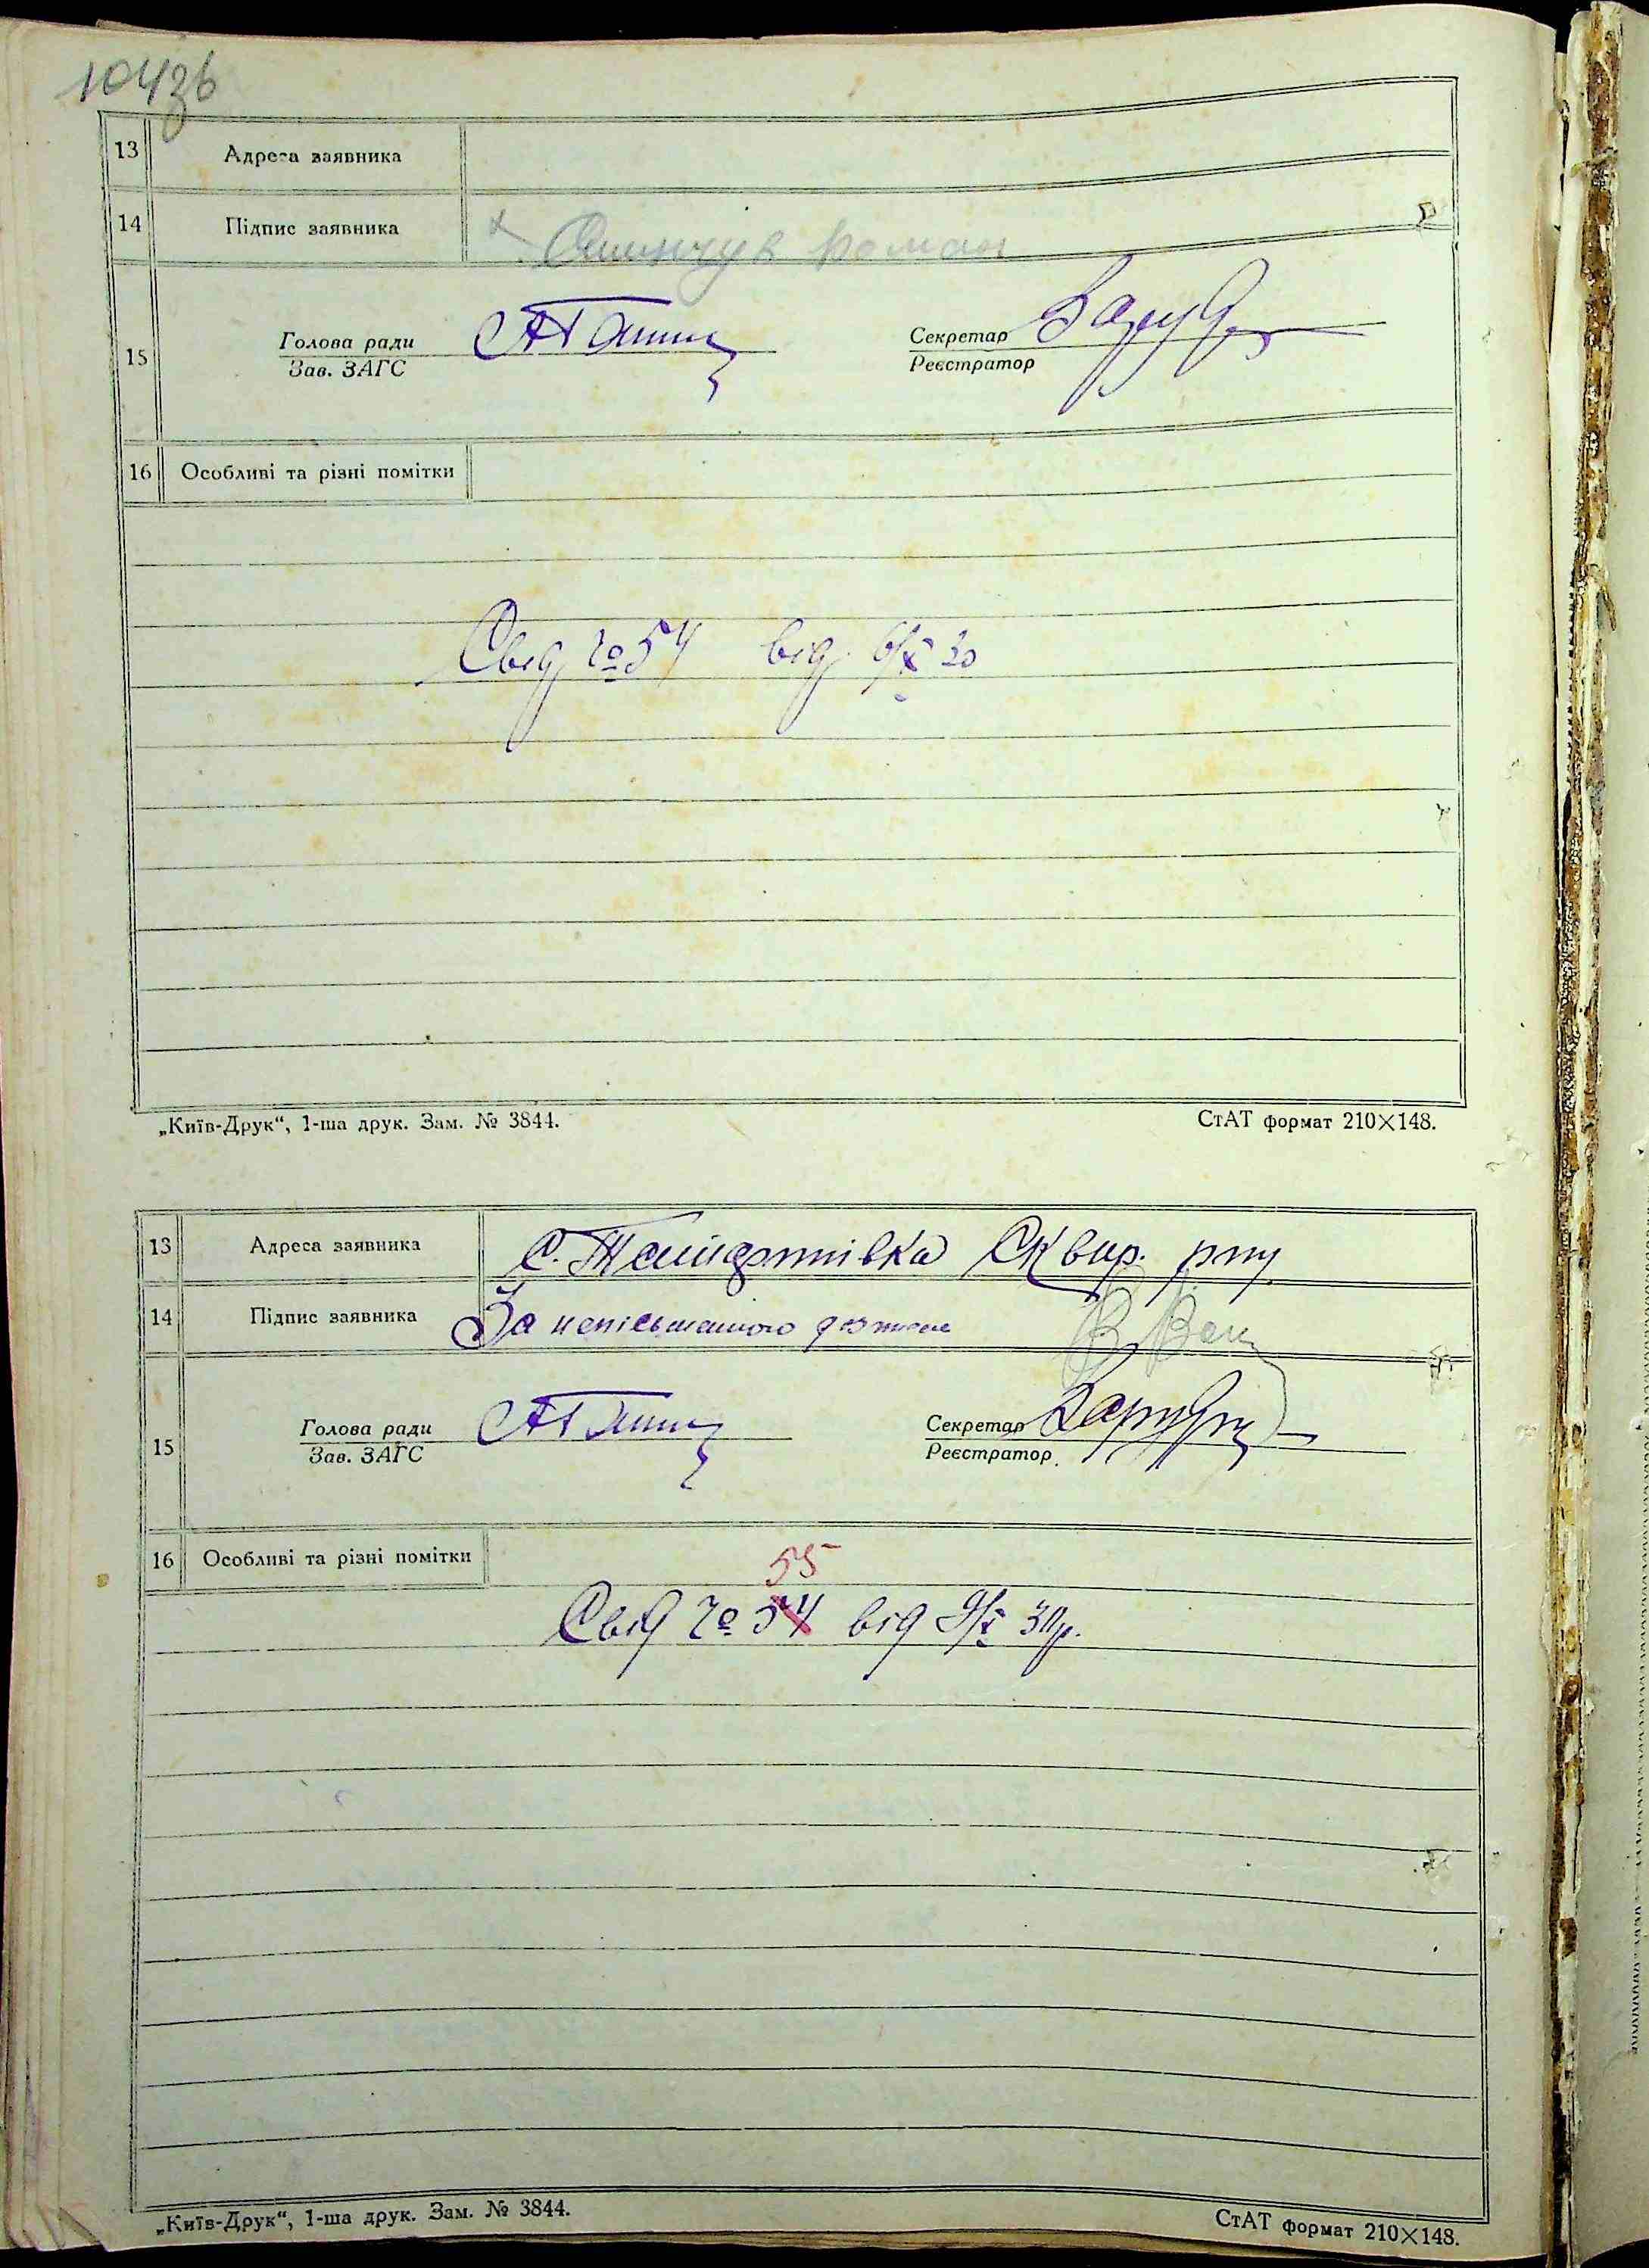 104зв
13 Адреса заявника
14 Підпис заявника роман
15 Голова ради Секретар
Зав. ЗАГС Реєстратор
16 Особливі та різні помітки
Свід № 54 від 6/X 30
„Київ-Друк“, 1-ша друк. Зам. № 3844. СтАТ формат 210×148.
13 Адреса заявника С. Сквир. рну
14 Підпис заявника За неписьменого
15 Голова ради Секретар
Зав. ЗАГС Реєстратор
16 Особливі та різні помітки 55
Свід № 54 від 9/X 30р.
„Київ-Друк“, 1-ша друк. Зам. № 3844. СтАТ формат 210×148.